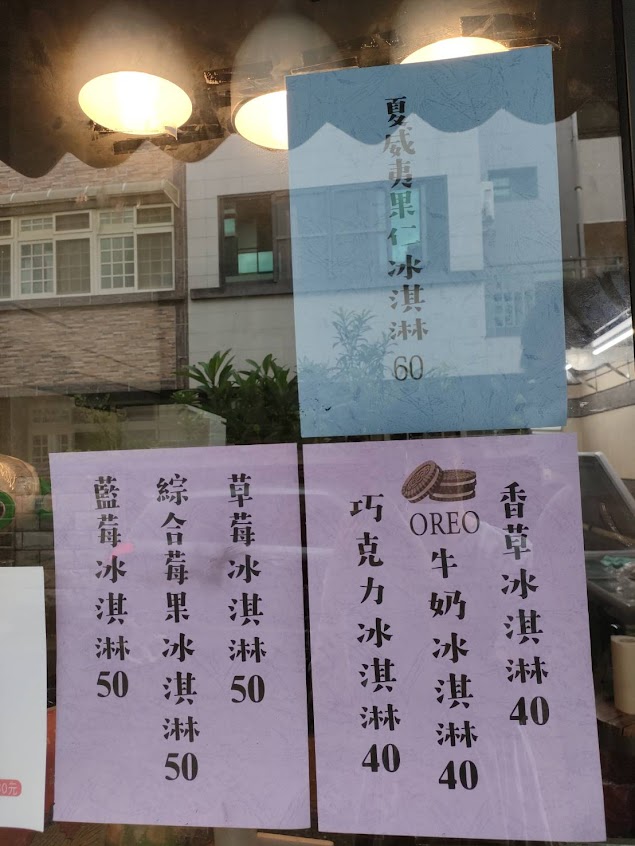 夏威夷果仁冰淇淋60
香草冰淇淋40
OREO牛奶冰淇淋40
巧克力冰淇淋40
草莓冰淇淋50
綜合莓果冰淇淋50
藍莓冰淇淋50